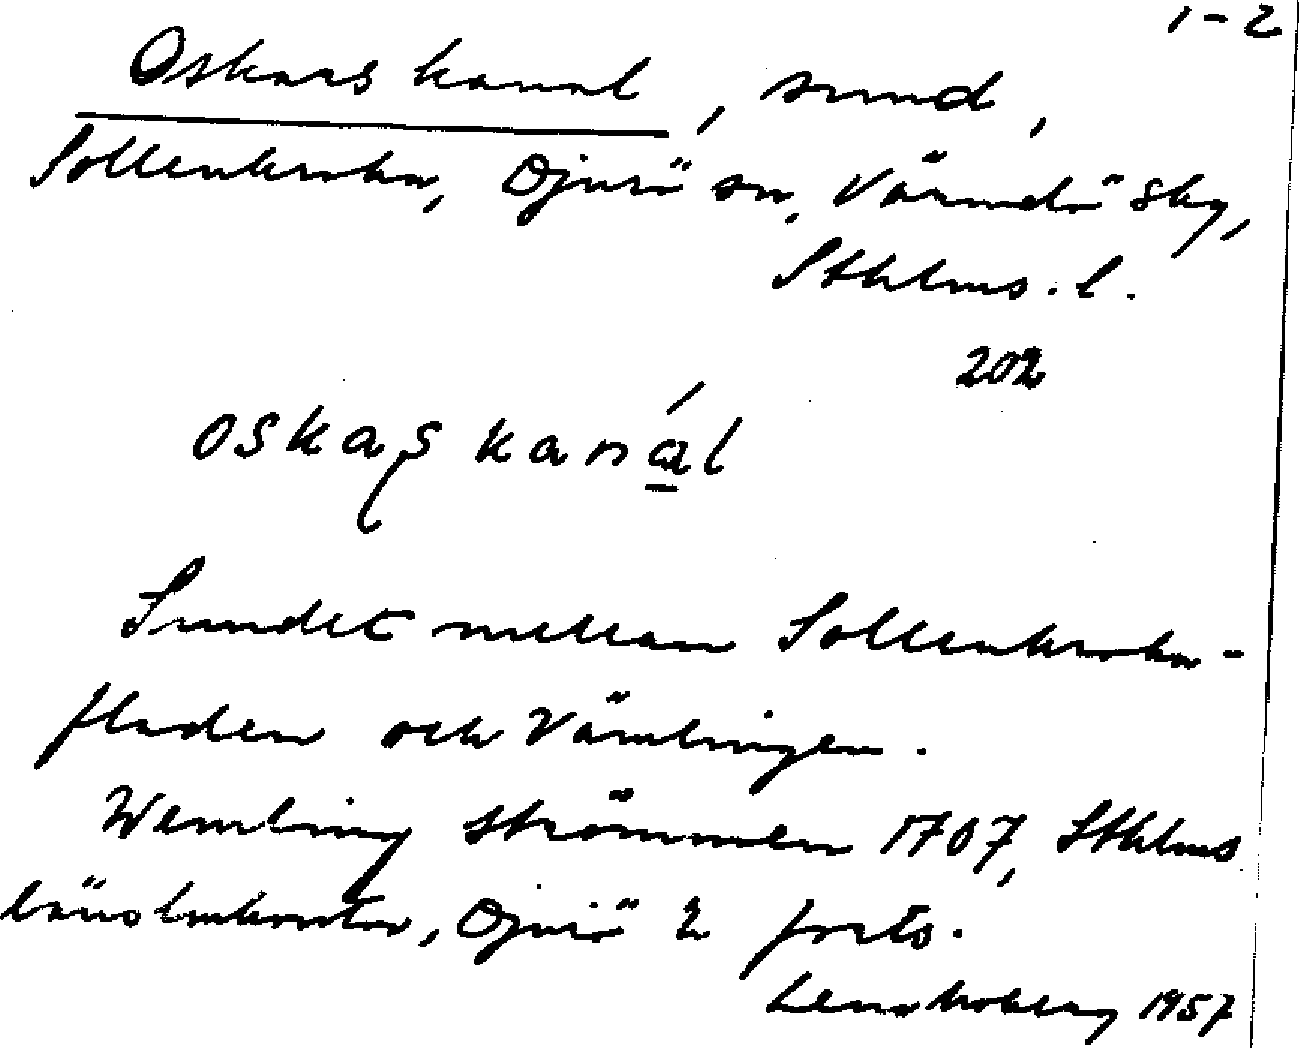 1-2
Oskars kanal, sund,
Sollenkroka, Djurö sn, Värmdö skg,
Sthlms. l.
202
oskaʂ kanál
Sundet mellan Sollenkroka-
fladen och Vämlingen.
Wemling strömmen 1707, Sthlms
läns lmkontor, Djurö 2 forts.
1957